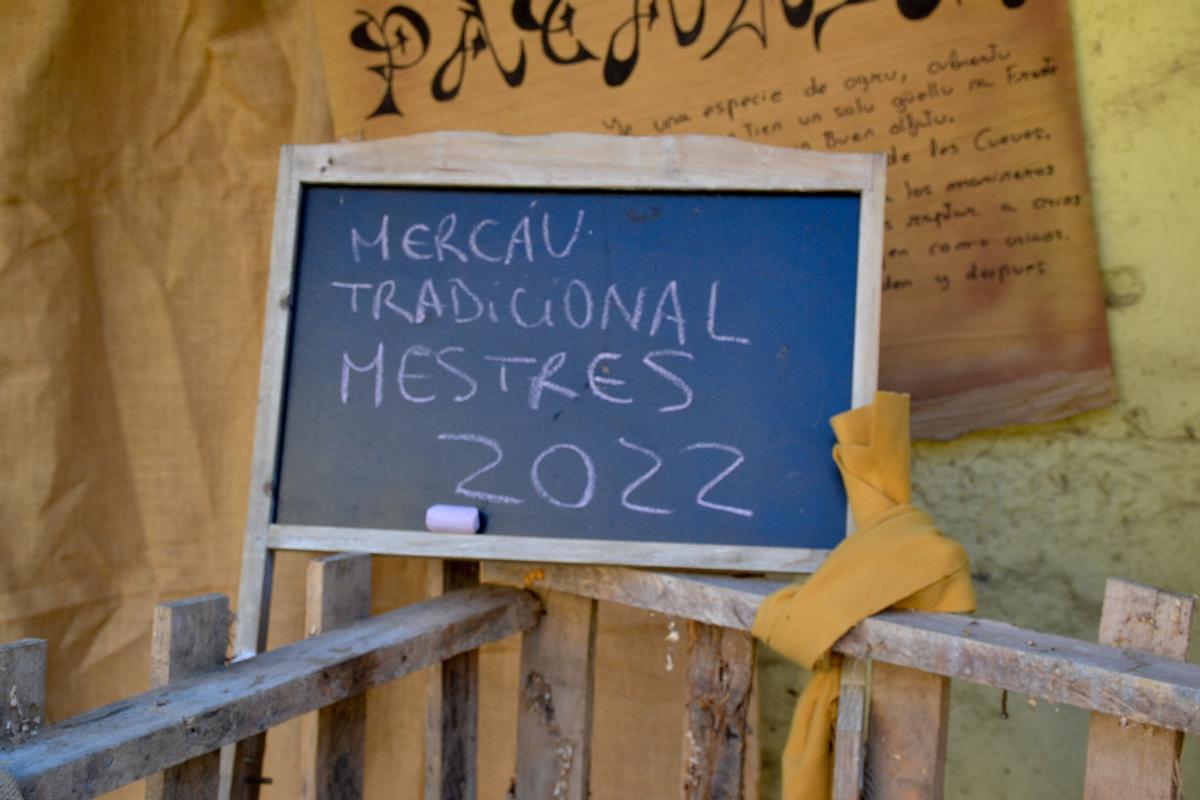 Ye una especie de ogru, cubiertu
Tien un solu güellu na Frente
un Buen olfatu.
de les Cueves.
a los marineros
raptar a
en como
y despues
MERCÁU
TRADICIONAL
MESTRES
2022